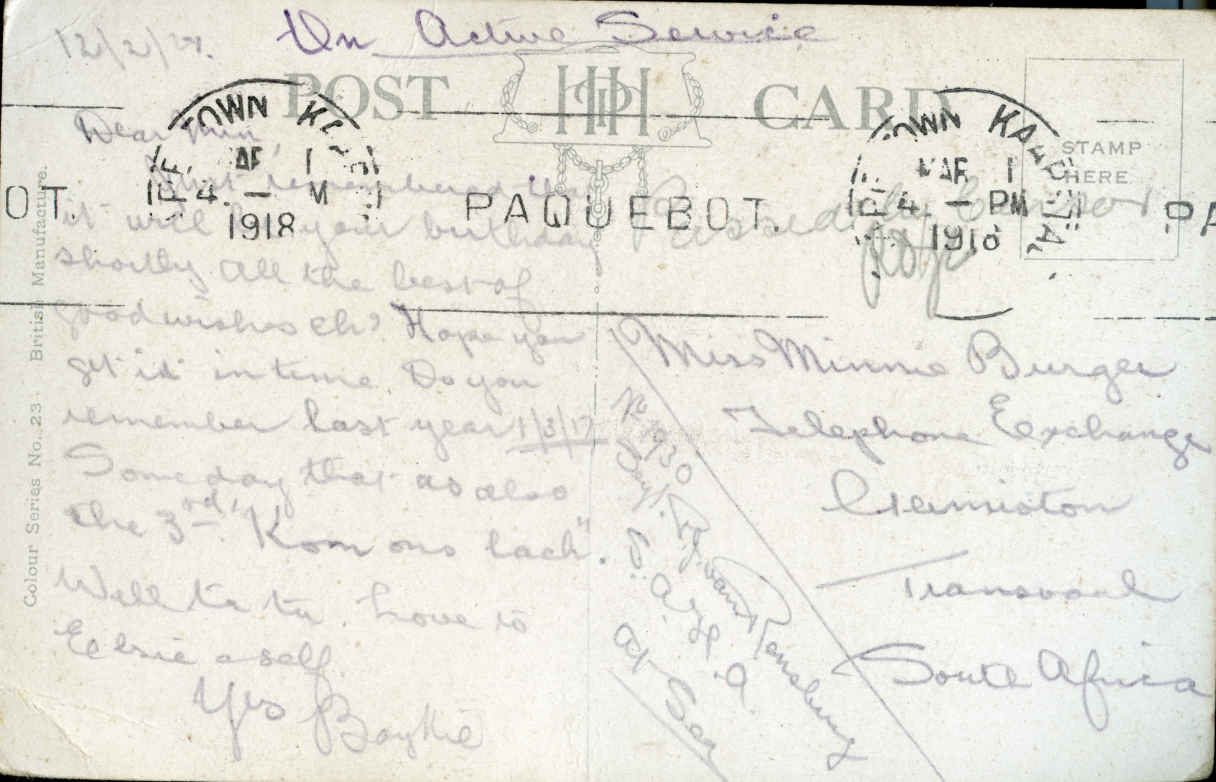 12/2/
On Active Service
POST CARD
HH
STAMP
HERE
TOWN
MAR 1
4. — PM
1918
PAQUEBOT.
Passed by Censor
Dear Min
Just remembered that
it will your birthday
shortly all the best of
good wishes eh? Hope you
get it in time. Do you
remember last year 1/3/17
Someday that as also
the 3rd, "Kom ons lach".
Well ta ta. Love to
Elsie & self.
Yrs Baykie
Miss Minnie Burger
Telephone Exchange
Germiston
Transvaal
South Africa
No 930
van Rensburg
S. A. H. A
At Sea
Colour Series No. 23 - British Manufacture.